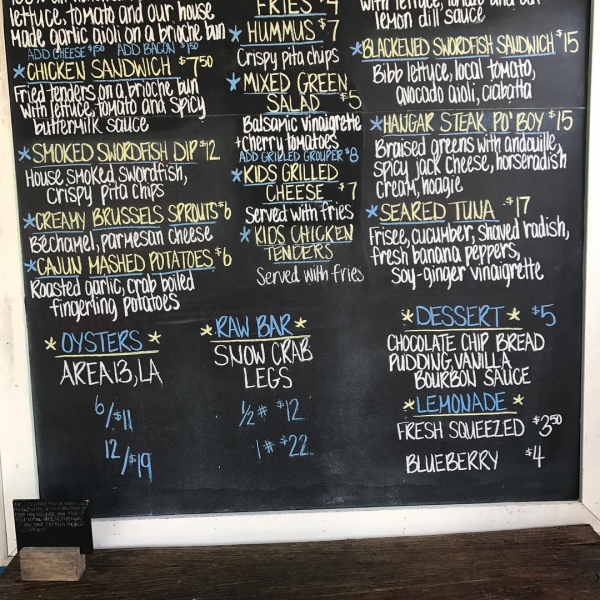 lettuce, tomato and our house
made garlic aioli on a brioche bun
ADD CHEESE $1.50 ADD BACON $1.50
*CHICKEN SANDWICH $7.50
Fried tenders on a brioche bun
with lettuce, tomato and spicy
buttermilk sauce
*SMOKED SWORDFISH DIP $12
House smoked swordfish,
Crispy pita chips
*CREAMY BRUSSELS SPROUTS $6
Bechamel, parmesan cheese
*CAJUN MASHED POTATOES $6
Roasted garlic, crab boiled
fingerling potatoes
FRIES $4
*HUMMUS $7
Crispy pita chips
*MIXED GREEN
SALAD $5
Balsamic vinaigrette
+cherry tomatoes
ADD GRILLED GROUPER $8
*KIDS GRILLED
CHEESE $7
Served with fries
*KIDS CHICKEN
TENDERS
Served with fries
lemon dill sauce
*BLACKENED SWORDFISH SANDWICH $15
Bibb lettuce, local tomato,
avocado aioli, ciabatta
*HANGAR STEAK PO' BOY $15
Braised greens with andouille,
spicy jack cheese, horseradish
cream, hoagie
*SEARED TUNA $17
Frisee, cucumber, shaved radish,
fresh banana peppers,
soy-ginger vinaigrette
*OYSTERS*
AREA 13, LA
6/$11
12/$19
*RAW BAR*
SNOW CRAB
LEGS
1/2# $12
1# $22
*DESSERT* $5
CHOCOLATE CHIP BREAD
PUDDING, VANILLA
BOURBON SAUCE
*LEMONADE*
FRESH SQUEEZED $3.50
BLUEBERRY $4